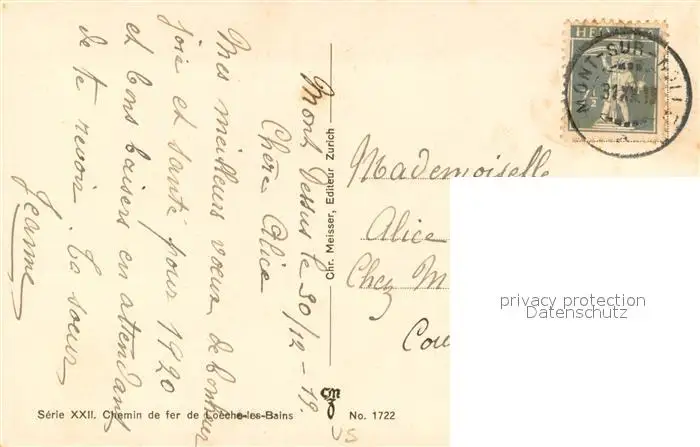 HELVETIA
MONT-SUR-ROLLE
31.XII.19
7½
Mont Dessus le 30/12-19.
Chère Alice
Mes meilleurs voeux de bonheur
joie et santé pour 1920
et bons baisers en attendant
de te revoir. Ta soeur
Jeanne
Chr. Meisser, Editeur Zurich
Mademoiselle
Alice
Chez M
Cou
privacy protection
Datenschutz
Série XXII. Chemin de fer de Loèche-les-Bains
cm
Z
No. 1722
VS